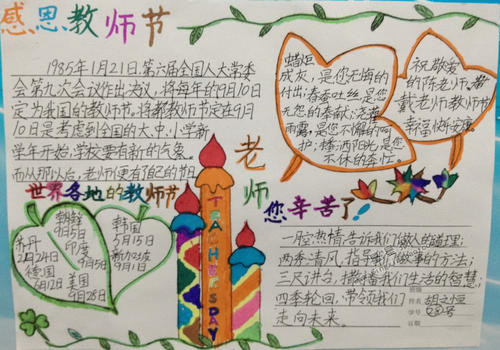 感恩教师节
1985年1月21日,第六届全国人大常委
会第九次会议作出决议,将每年的9月10日
定为我国的教师节。将教师节定在9月
10日是考虑到全国的大、中、小学新
学年开始,学校要有新的气象。
而从那以后,老师们便有了自己的节日
蜡炬
成灰,是您无悔的
付出;春蚕吐丝,是您
无怨的奉献;
雨露,是您不懈的呵
护;播洒阳光,是您
不休的牵忙。
祝敬爱
的陈老师、曹
戴老师教师节
幸福快乐安康。
老师
您辛苦了!
世界各地的教师节
朝鲜
9月5日
印度
9月5日
美国
9月28日
苏丹
2月24日
德国
6月12日
韩国
5月15日
新加坡
9月1日
TEACHER'S DAY
一腔热情,告诉我们做人的道理;
两季清风,指导我们做事的方法;
三尺讲台,播播我们生活的智慧;
四季轮回,带领我们
走向未来。
班级
姓名
学号
日期